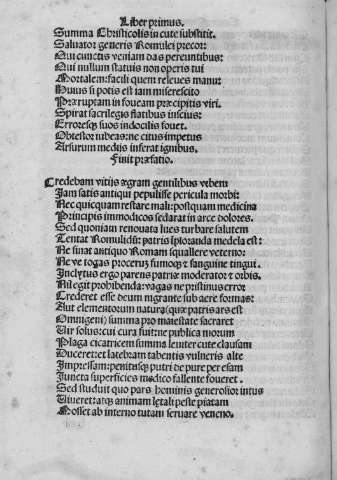 Liber primus.
Summa Christicolis in cute substitit.
Saluator generis Romulei precor:
Qui cunctis veniam das pereuntibus:
Qui nullum statuis non operis tui
Mortalem: facili quem releues manu:
Huius si potis est iam miserescito
Præruptam in foueam præcipitis viri.
Spirat sacrilegis flatibus inscius:
Erroresq; suos indocilis fouet.
Obtestor iubeas: ne citus impetus
Arsurum medijs inferat ignibus.
Finit præfatio.
Credebam vitijs ægram gentilibus vrbem
Iam satis antiqui pepulisse pericula morbi:
Nec quicquam restare mali: postquam medicina
Principis immodicos sedarat in arce dolores.
Sed quoniam renouata lues turbare salutem
Tentat Romulidũ: patris īploranda medela est:
Ne sinat antiquo Romam squallere veterno:
Ne ve togas procerũ fumoq; & sanguine tingui.
Inclytus ergo parens patriæ moderator & orbis.
Nil egit prohibenda: vagas ne pristinus error
Crederet esse deum nigrante sub aere formas:
Aut elementorum natura(quæ patris ars est
Omnigeni) summa pro maiestate sacraret
Vir solus: cui cura fuit: ne publica morum
Plaga cicatricem summa leuiter cute clausam
Duceret: et latebram tabentis vulneris alte
Impressam: penitusq; putri de pure peresam
Iuncta superficies medico fallente foueret.
Sed studuit quo pars hominis generosior intus
Viueret: atq; animam letali peste piatam
Nosset ab interno tutam seruare veneno.